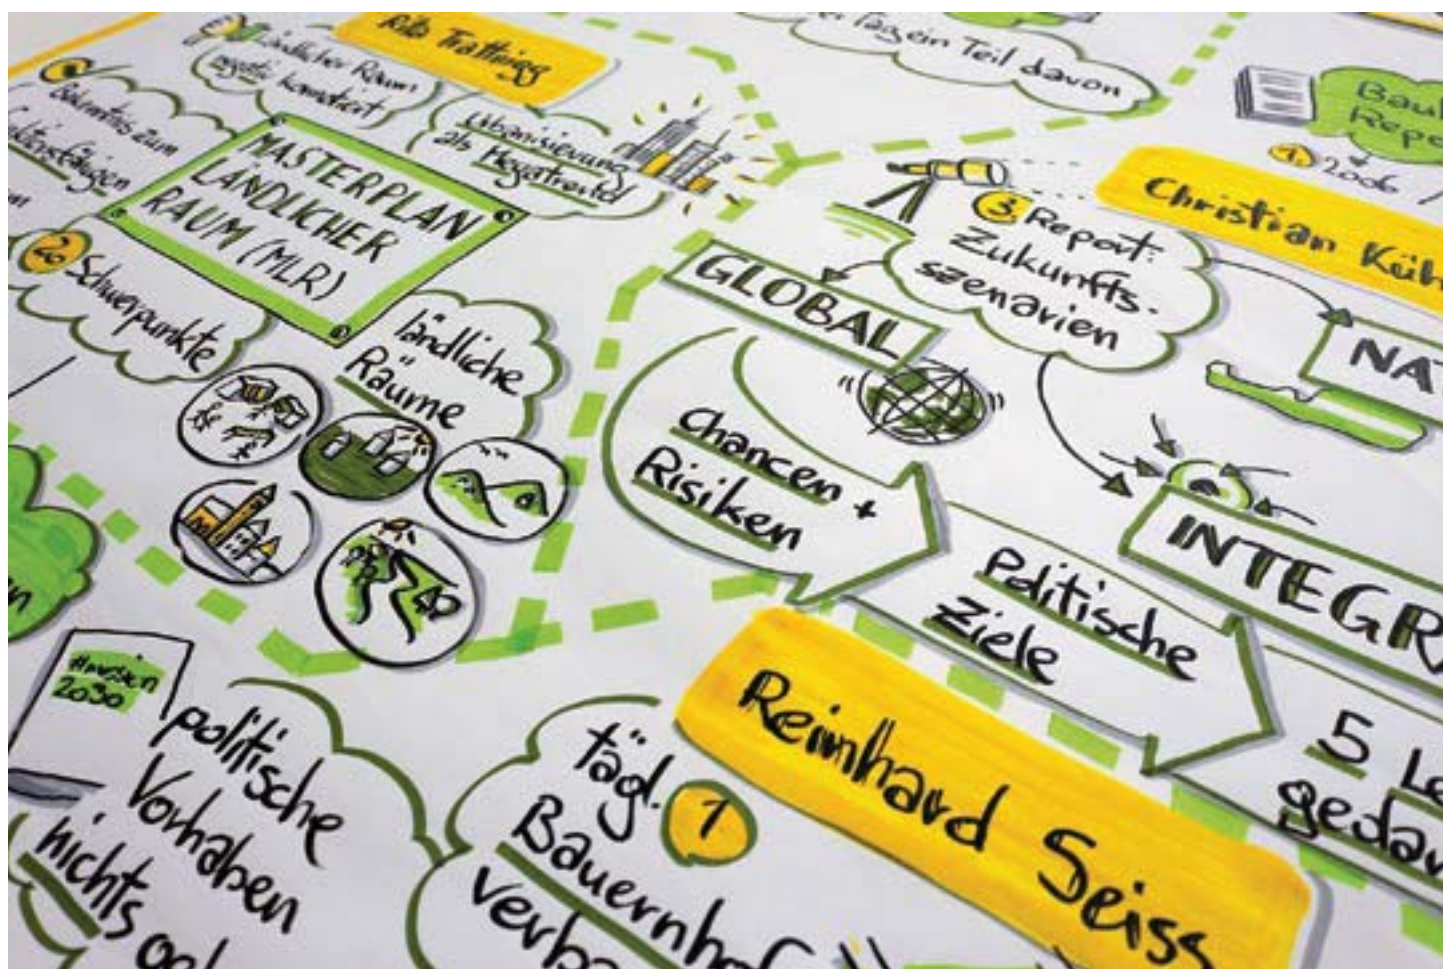 Rita Trattnigg
Ländlicher Raum
negativ konnotiert
Bekenntnis zum
Urbanisierung
als Megatrend
MASTERPLAN
LÄNDLICHER
RAUM (MLR)
20 Schwerpunkte
ländliche
Räume
Tag ein Teil davon
1. 2006
Christian Küh
3. Report:
Zukunfts-
szenarien
GLOBAL
NAT
Chancen +
Risiken
Politische
Ziele
INTEGR
5 Le
gedan
Reinhard Seiss
#mission
2030
politische
Vorhaben
nichts
tägl. 1
Bauernhof
verba